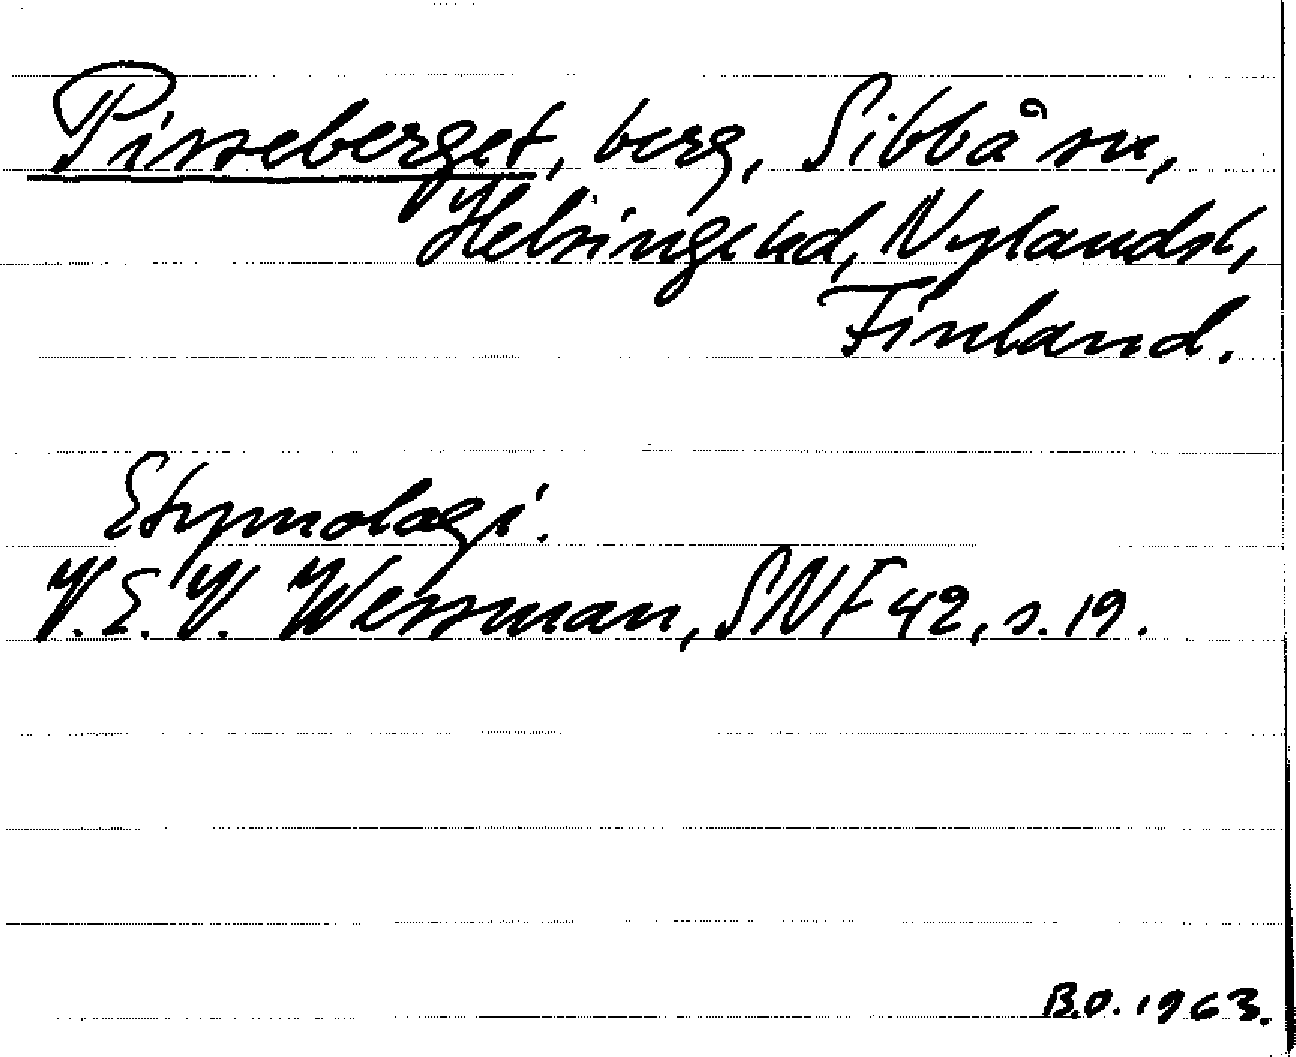 Pisseberget, berg, Sibbå sn,
Helsinge hd, Nylands l,
Finland.
Etymologi.
V. E. V. Wessman, SNF 42, s. 19.
B.O. 1963.